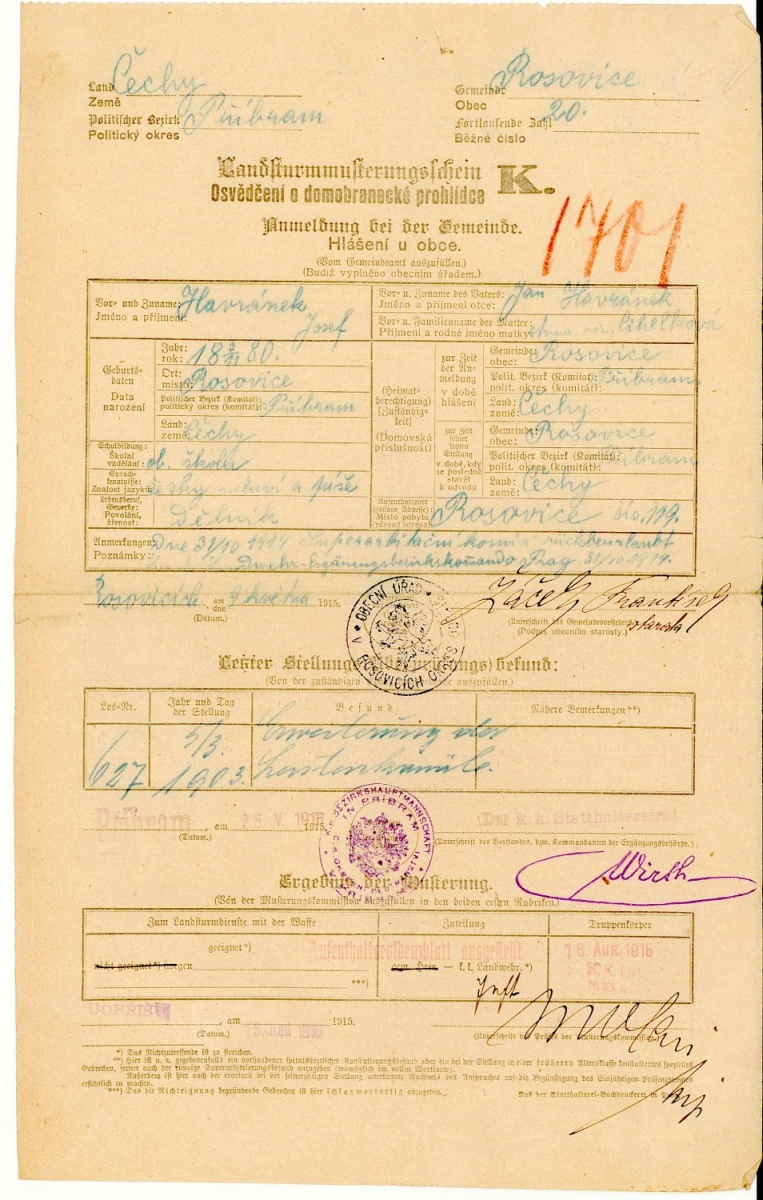 Land Čechy
Země
Politischer Bezirk Příbram
Politický okres
Gemeinde Rosovice
Obec
Fortlaufende Zahl 20.
Běžné číslo
Landsturmmusterungsschein K.
Osvědčení o domobranecké prohlídce
1701
Anmeldung bei der Gemeinde.
Hlášení u obce.
(Vom Gemeindeamt auszufüllen.)
(Budiž vyplněno obecním úřadem.)
Vor- und Zuname: Havránek
Jméno a příjmení: Josef
Vor- u. Zuname des Vaters: Jan Havránek
Jméno a příjmení otce:
Vor- u. Familienname der Mutter:
Příjmení a rodné jméno matky: Cibelková
Geburtsdaten
Data narození
Jahr:
rok: 18 80.
Ort:
místo: Rosovice
Politischer Bezirk (Komitat):
politický okres (komitát): Příbram
Land:
země: Čechy
(Heimatberechtigung)
(Zuständigkeit)
(Domovská příslušnost)
zur Zeit der Anmeldung
v době hlášení
Gemeinde: Rosovice
obec:
Polit. Bezirk (Komitat): Příbram
polit. okres (komitát):
Land: Čechy
země:
zur Zeit seiner letzten Stellung
v době, kdy se posledně stavěl k odvodu
Gemeinde: Rosovice
obec:
Politischer Bezirk (Komitat): Příbram
polit. okres (komitát):
Land: Čechy
země:
Schulbildung:
Školní vzdělání: ob. škola
Sprachkenntnisse:
Znalost jazyků: česky mluví a píše
Lebensberuf, Gewerbe:
Povolání, živnost: Dělník
Aufenthaltsort (genaue Adresse):
Místo pobytu (přesná adresa): Rosovice čís. 119.
Anmerkungen: Dne 31/10 1914 Superarbitační komisí rückbeurlaubt
Poznámky: Ldwehr-Ergänzungsbezirkskomando Prag 31/10 1914.
Rosovicích, am dne 9 května 1915.
(Datum.)
OBECNÍ ÚŘAD V ROSOVICÍCH OKRES
Žáček František
starosta
(Unterschrift des Gemeindevorstehers)
(Podpis obecního starosty.)
Letzter Stellungs(Überprüfungs)befund:
(Von der zuständigen auszufüllen.)
Los-Nr.
Jahr und Tag der Stellung
Befund
Nähere Bemerkungen**)
627
5/3. 1903.
Erweiterung der
Leistenkanäle.
Příbram, am 25 V. 1915 1915.
(Datum.)
K.K. BEZIRKSHAUPTMANNSCHAFT IN PŘIBRAM
Der k. k. Statthaltereirat
(Unterschrift des Vorstandes, bzw. Kommandanten der Ergänzungsbehörde.)
Wirth
Ergebnis der Musterung.
(Von der Musterungskommission auszufüllen in den beiden ersten Rubriken.)
Zum Landsturmdienste mit der Waffe
Zuteilung
Truppenkörper
geeignet*)
nicht geeignet*) wegen
***)
Aufenthaltsevidenzblatt ausgestellt
gem. Heer — k. k. Landwehr.*)
16 AUG. 1915
PILSEN
Inft
DOBŘÍŠ, am 15. JUNI 1915 1915.
(Datum.)
(Unterschrift des Präses der Musterungskommission.)
*) Das Nichtzutreffende ist zu streichen.
**) Hier ist u. a. gegebenenfalls ein vorhandener spitalsärztlicher Konstatierungsbefund oder ein bei der Stellung in einer früheren Altersklasse konstatiertes spezielles
Gebrechen, ferner auch der etwaige Superarbitrierungsbefund anzugeben (womöglich im vollen Wortlaute).
Außerdem ist hier auch der eventuell bei der seinerzeitigen Stellung anerkannte Nachweis des Anspruches auf die Begünstigung des Einjährigen-Präsenzdienstes
ersichtlich zu machen.
***) Das die Nichteignung begründende Gebrechen ist hier schlagwortartig anzugeben.
Aus der Statthalterei-Buchdruckerei in Prag.